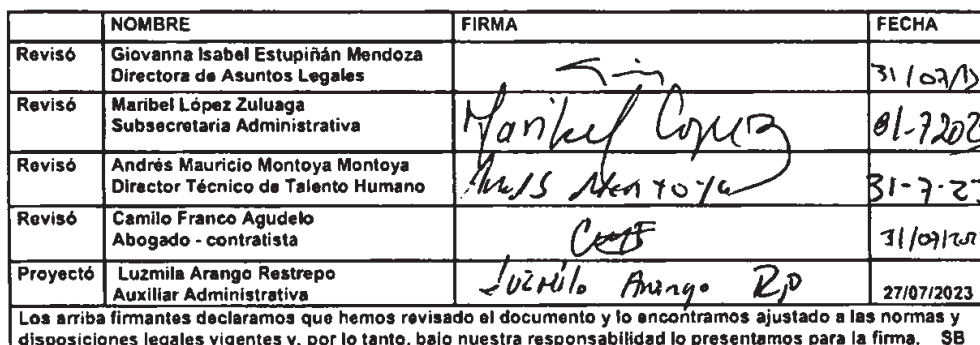 NOMBRE FIRMA FECHA
Revisó Giovanna Isabel Estupiñán Mendoza
Directora de Asuntos Legales 31/07/
Revisó Maribel López Zuluaga
Subsecretaria Administrativa Maribel Lopez
Revisó Andrés Mauricio Montoya Montoya
Director Técnico de Talento Humano Montoya 31-7-23
Revisó Camilo Franco Agudelo
Abogado - contratista 31/07/
Proyectó Luzmila Arango Restrepo
Auxiliar Administrativa Luzmila Arango R. 27/07/2023
Los arriba firmantes declaramos que hemos revisado el documento y lo encontramos ajustado a las normas y
disposiciones legales vigentes y, por lo tanto, bajo nuestra responsabilidad lo presentamos para la firma. SB